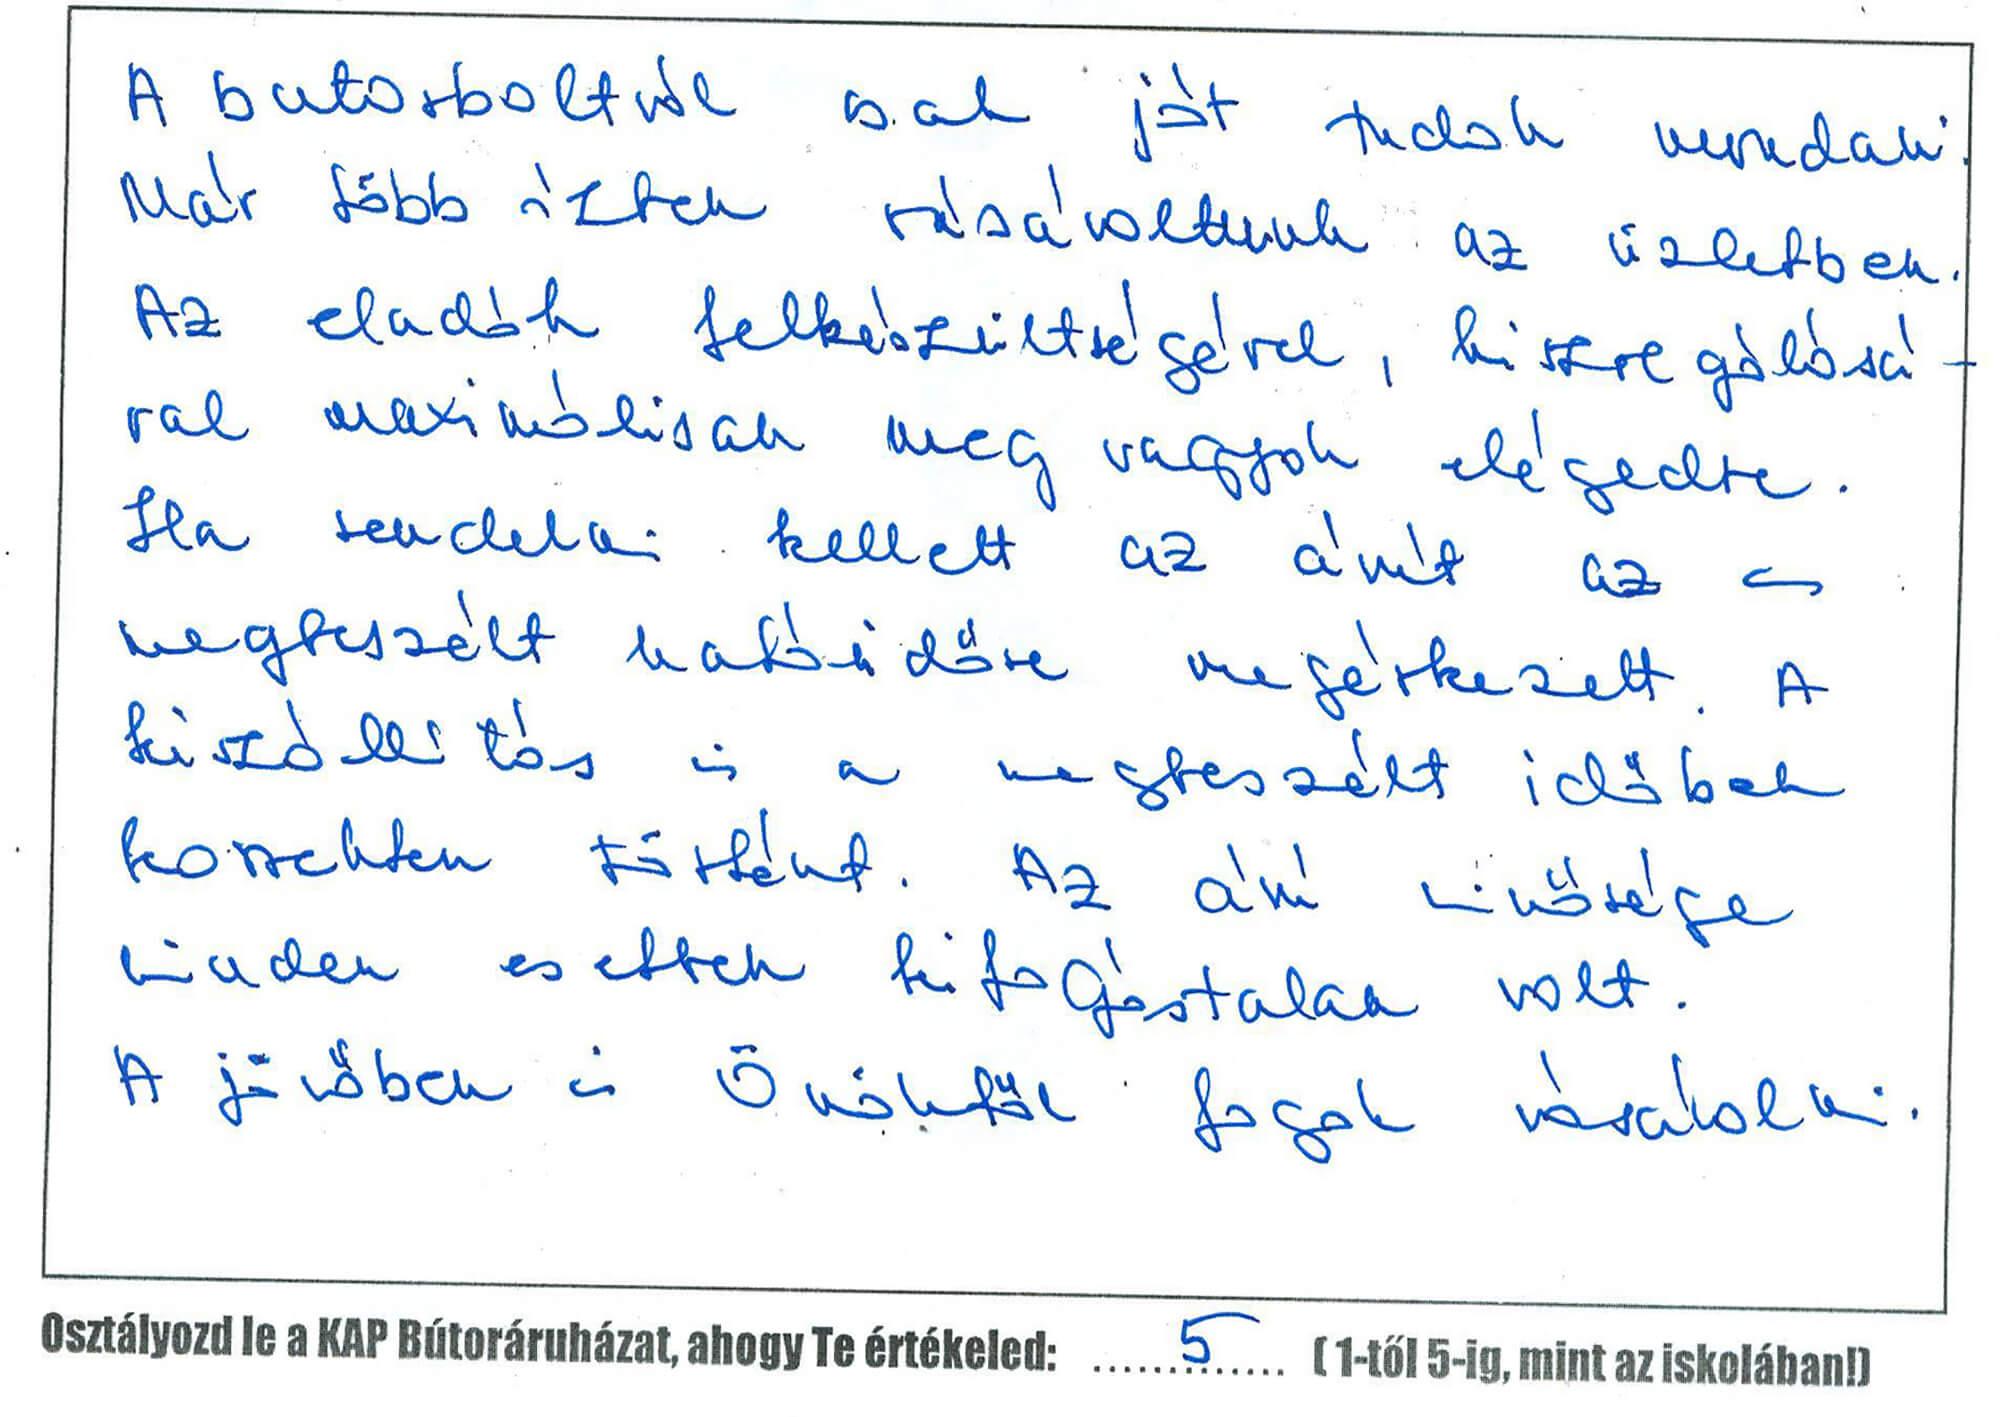 A butorboltról csak jót tudok mondani.
Már több ízben vásároltunk az üzletben.
Az eladók felkészültségével, kiszolgálásá-
val maximálisan meg vagyok elégedve.
Ha rendelni kellett az árút az
megbeszélt határidőre megérkezett. A
kiszállítás is a megbeszélt időben
korrekten történt. Az árú minősége
minden esetben kifogástalan volt.
A jövőben is Önöktől fogok vásárolni.
Osztályozd le a KAP Bútoráruházat, ahogy Te értékeled: 5 (1-től 5-ig, mint az iskolában!)